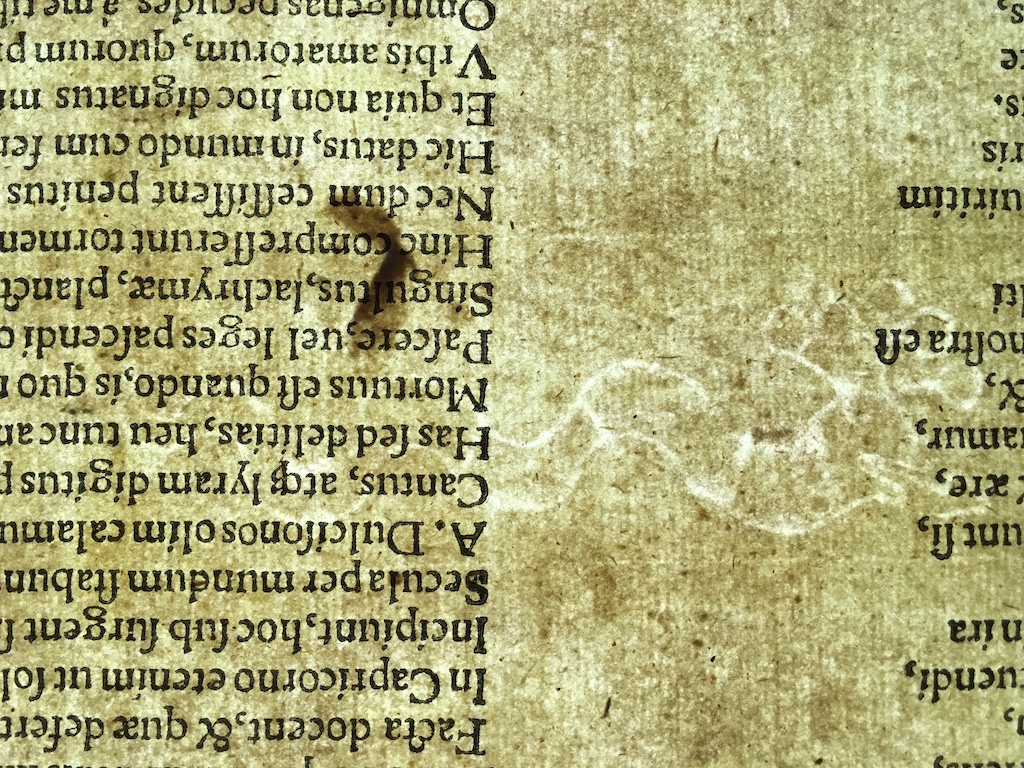 uendi,
ira
unt ſi,
ære,
amur,
&,
noſtra eſt
iti
uiritim
ris
s.
te
s,
Facta docent,& quæ deferit
In Capricorno etenim ut ſol
Incipiunt,hoc ſub ſurgent ſ
Secula per mundum ſtabun
A. Dulciſonos olim calamu
Cantus, atq; lyram digitis p
Has ſed delitias, heu tunc an
Mortuus eſt quando,is, quo n
Paſcere,uel leges paſcendi c
Singultus,lachrymæ, planct
Hinc compreſſerunt tormen
Nec dum ceſſiſſent penitus
Hic datus, in mundo cum fer
Et quia non hoc dignatus
Vrbis amatorum, quorum p
Omnigenas pecudes, à me tib